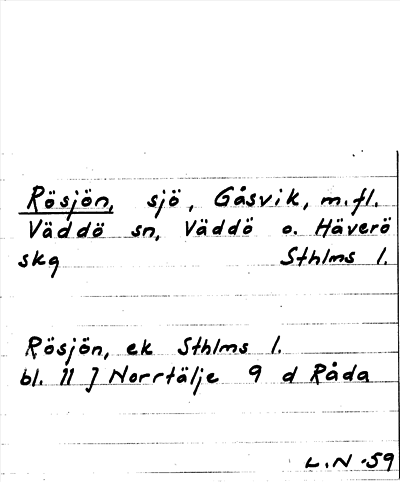 Rösjön, sjö, Gåsvik, m.fl.
Väddö sn, Väddö o. Häverö
skg Sthlms l.
Rösjön, ek Sthlms l.
bl. 11 J Norrtälje 9 d Råda
L.N -59